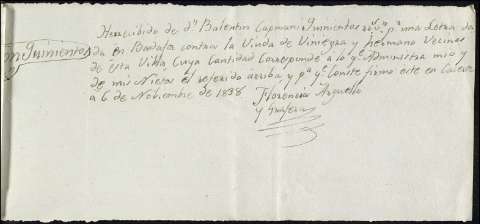 He recibido de dn Balentin Capmani Quinientos rs vn pr una Letra da
da en Badajoz contra la Viuda de Viniegra y hermano Vecinos
de esta Villa Cuya Cantidad Corresponde a lo qe Administra mio y
de mis Nietos el referido arriba y pa qe Conste firmo este en Cacere
a 6 de Nobiembre de 1838
Quinientos
Florencia Arguello
y Grajera